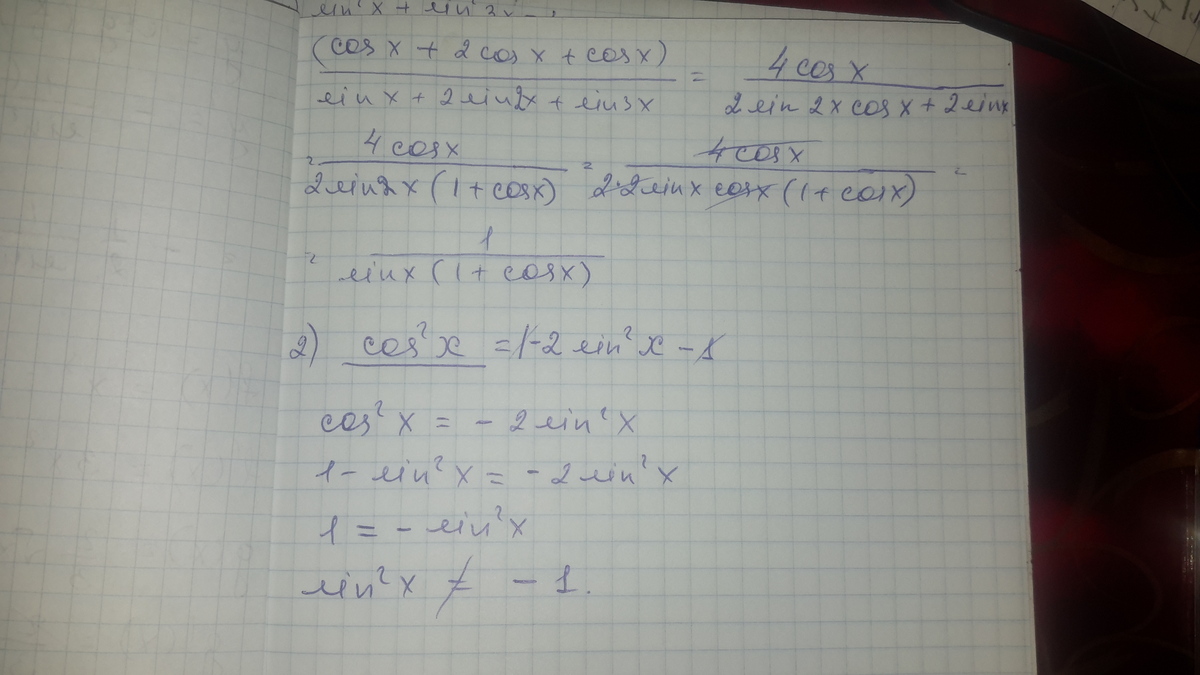 sin²x + sin²
(cos x + 2 cos x + cos x) / (sin x + 2 sin 2x + sin 3x) = 4 cos x / (2 sin 2x cos x + 2 sin x
= 4 cos x / (2 sin 2x (1 + cos x)) = 4 cos x / (2·2 sin x cos x (1 + cos x)) =
= 1 / (sin x (1 + cos x))
2) cos²x = 1 - 2 sin²x - 1
cos²x = - 2 sin²x
1 - sin²x = - 2 sin²x
1 = - sin²x
sin²x ≠ - 1.